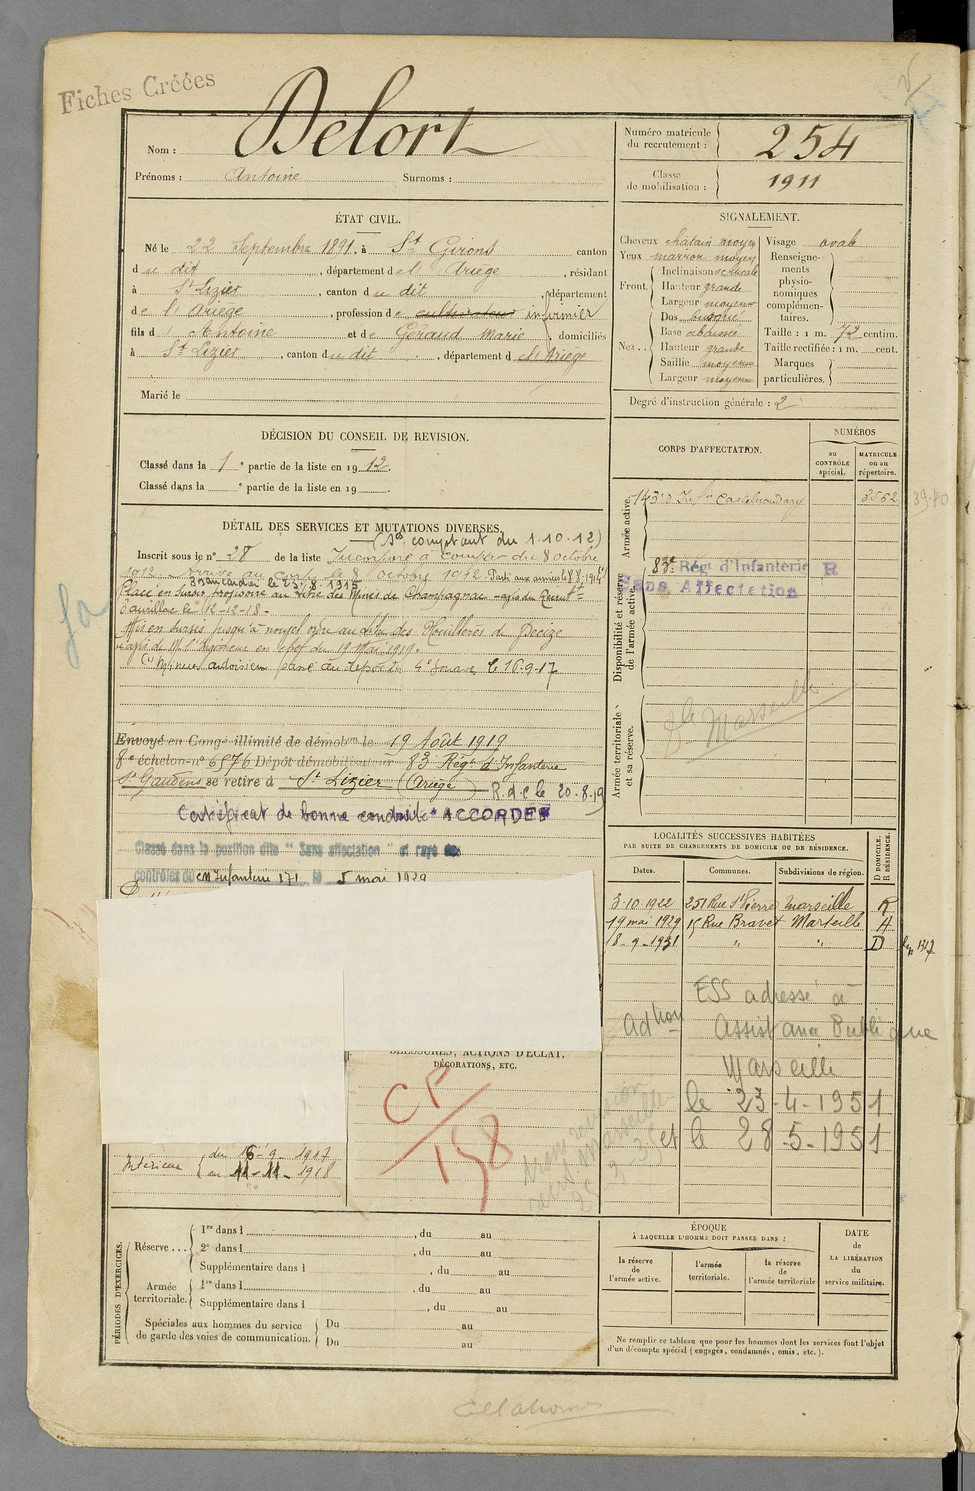 Fiches Créées
Nom : Delort
Prénoms : Antoine Surnoms :
Numéro matricule du recrutement : 254
Classe de mobilisation : 1911
ÉTAT CIVIL.
Né le 22 Septembre 1891, à St Girons canton
du dit, département de l' Ariège, résidant
à St Lizier, canton du dit, département
de l' Ariège, profession de cultivateur infirmier
fils d' Antoine et de Géraud Marie, domiciliés
à St Lizier, canton du dit, département de l' Ariège
Marié le
SIGNALEMENT.
Cheveux châtain moyen
Yeux marron moyen
Front. Inclinaison verticale
Hauteur grande
Largeur moyenne
Nez.. Dos busqué
Base abaissée
Hauteur grande
Saillie moyenne
Largeur moyenne
Visage ovale
Renseignements physionomiques complémentaires.
Taille : 1 m. 72 centim.
Taille rectifiée : 1 m. cent.
Marques particulières.
Degré d'instruction générale : 2
DÉCISION DU CONSEIL DE REVISION.
Classé dans la 1e partie de la liste en 1912.
Classé dans la e partie de la liste en 19 .
CORPS D'AFFECTATION.
NUMÉROS
au CONTRÔLE spécial.
MATRICULE ou au répertoire.
Armée active.
143e d'Infie Castelnaudary 3562
39-40
Disponibilité et réserve de l'armée active.
83e Régt d'Infanterie R
Sans Affectation
Armée territoriale et sa réserve.
Marseille
DÉTAIL DES SERVICES ET MUTATIONS DIVERSES.
(Ses comptant du 1.10.12)
Inscrit sous le no 28 de la liste Incorporé à compter du 8 octobre
1912. Arrivé au corps le 8 octobre 1912. Parti aux armées le 8.8.1914
Placé en sursis provisoire au titre des Mines de Champagnac
Aurillac le 12-12-18.
Mis en sursis jusqu'à nouvel ordre au titre des Houillères de Decize
avis de Mr l'Ingénieur en chef du 19 Mai 1919.
passé au dépôt du 4e Zouaves le 16.9.17
Envoyé en Congé illimité de démobon le 19 Août 1919
8e échelon no 6576 Dépôt démobilisateur 83 Régt d'Infanterie
St Gaudens se retire à St Lizier (Ariège) R.d.c le 20.8.19
Certificat de bonne conduite "ACCORDÉ"
Classé dans la position dite "Sans affectation" et rayé des
contrôles du CM Infanterie 171 le 5 mai 1929
LOCALITÉS SUCCESSIVES HABITÉES
PAR SUITE DE CHANGEMENTS DE DOMICILE OU DE RÉSIDENCE.
Dates. Communes. Subdivisions de région. D DOMICILE. R RÉSIDENCE.
3-10-1922 251 Rue St Pierre Marseille R
19 mai 1929 15 Rue Bravet Marseille
18-9-1931 " " D
ESS adressé à
Assistance Publique
Marseille
le 23-4-1951
et le 28-5-1951
BLESSURES, ACTIONS D'ÉCLAT,
DÉCORATIONS, ETC.
CP/158
Intérieur { du 16-9-1917
au 11-11-1918
PÉRIODES D'EXERCICES.
Réserve ... 1re dans l , du au
2e dans l , du au
Supplémentaire dans l , du au
Armée territoriale. 1re dans l , du au
Supplémentaire dans l , du au
Spéciales aux hommes du service de garde des voies de communication. Du au
Du au
ÉPOQUE
À LAQUELLE L'HOMME DOIT PASSER DANS :
la réserve de l'armée active.
l'armée territoriale.
la réserve de l'armée territoriale
DATE de LA LIBÉRATION du service militaire.
Ne remplir ce tableau que pour les hommes dont les services font l'objet
d'un décompte spécial (engagés, condamnés, omis, etc.).